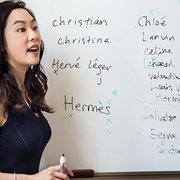 christian
christina
Hervé léger
Hermès
Chloé
Lanvin
Celine
Chanel
Valentin
Louis V
Salvator
Zegna